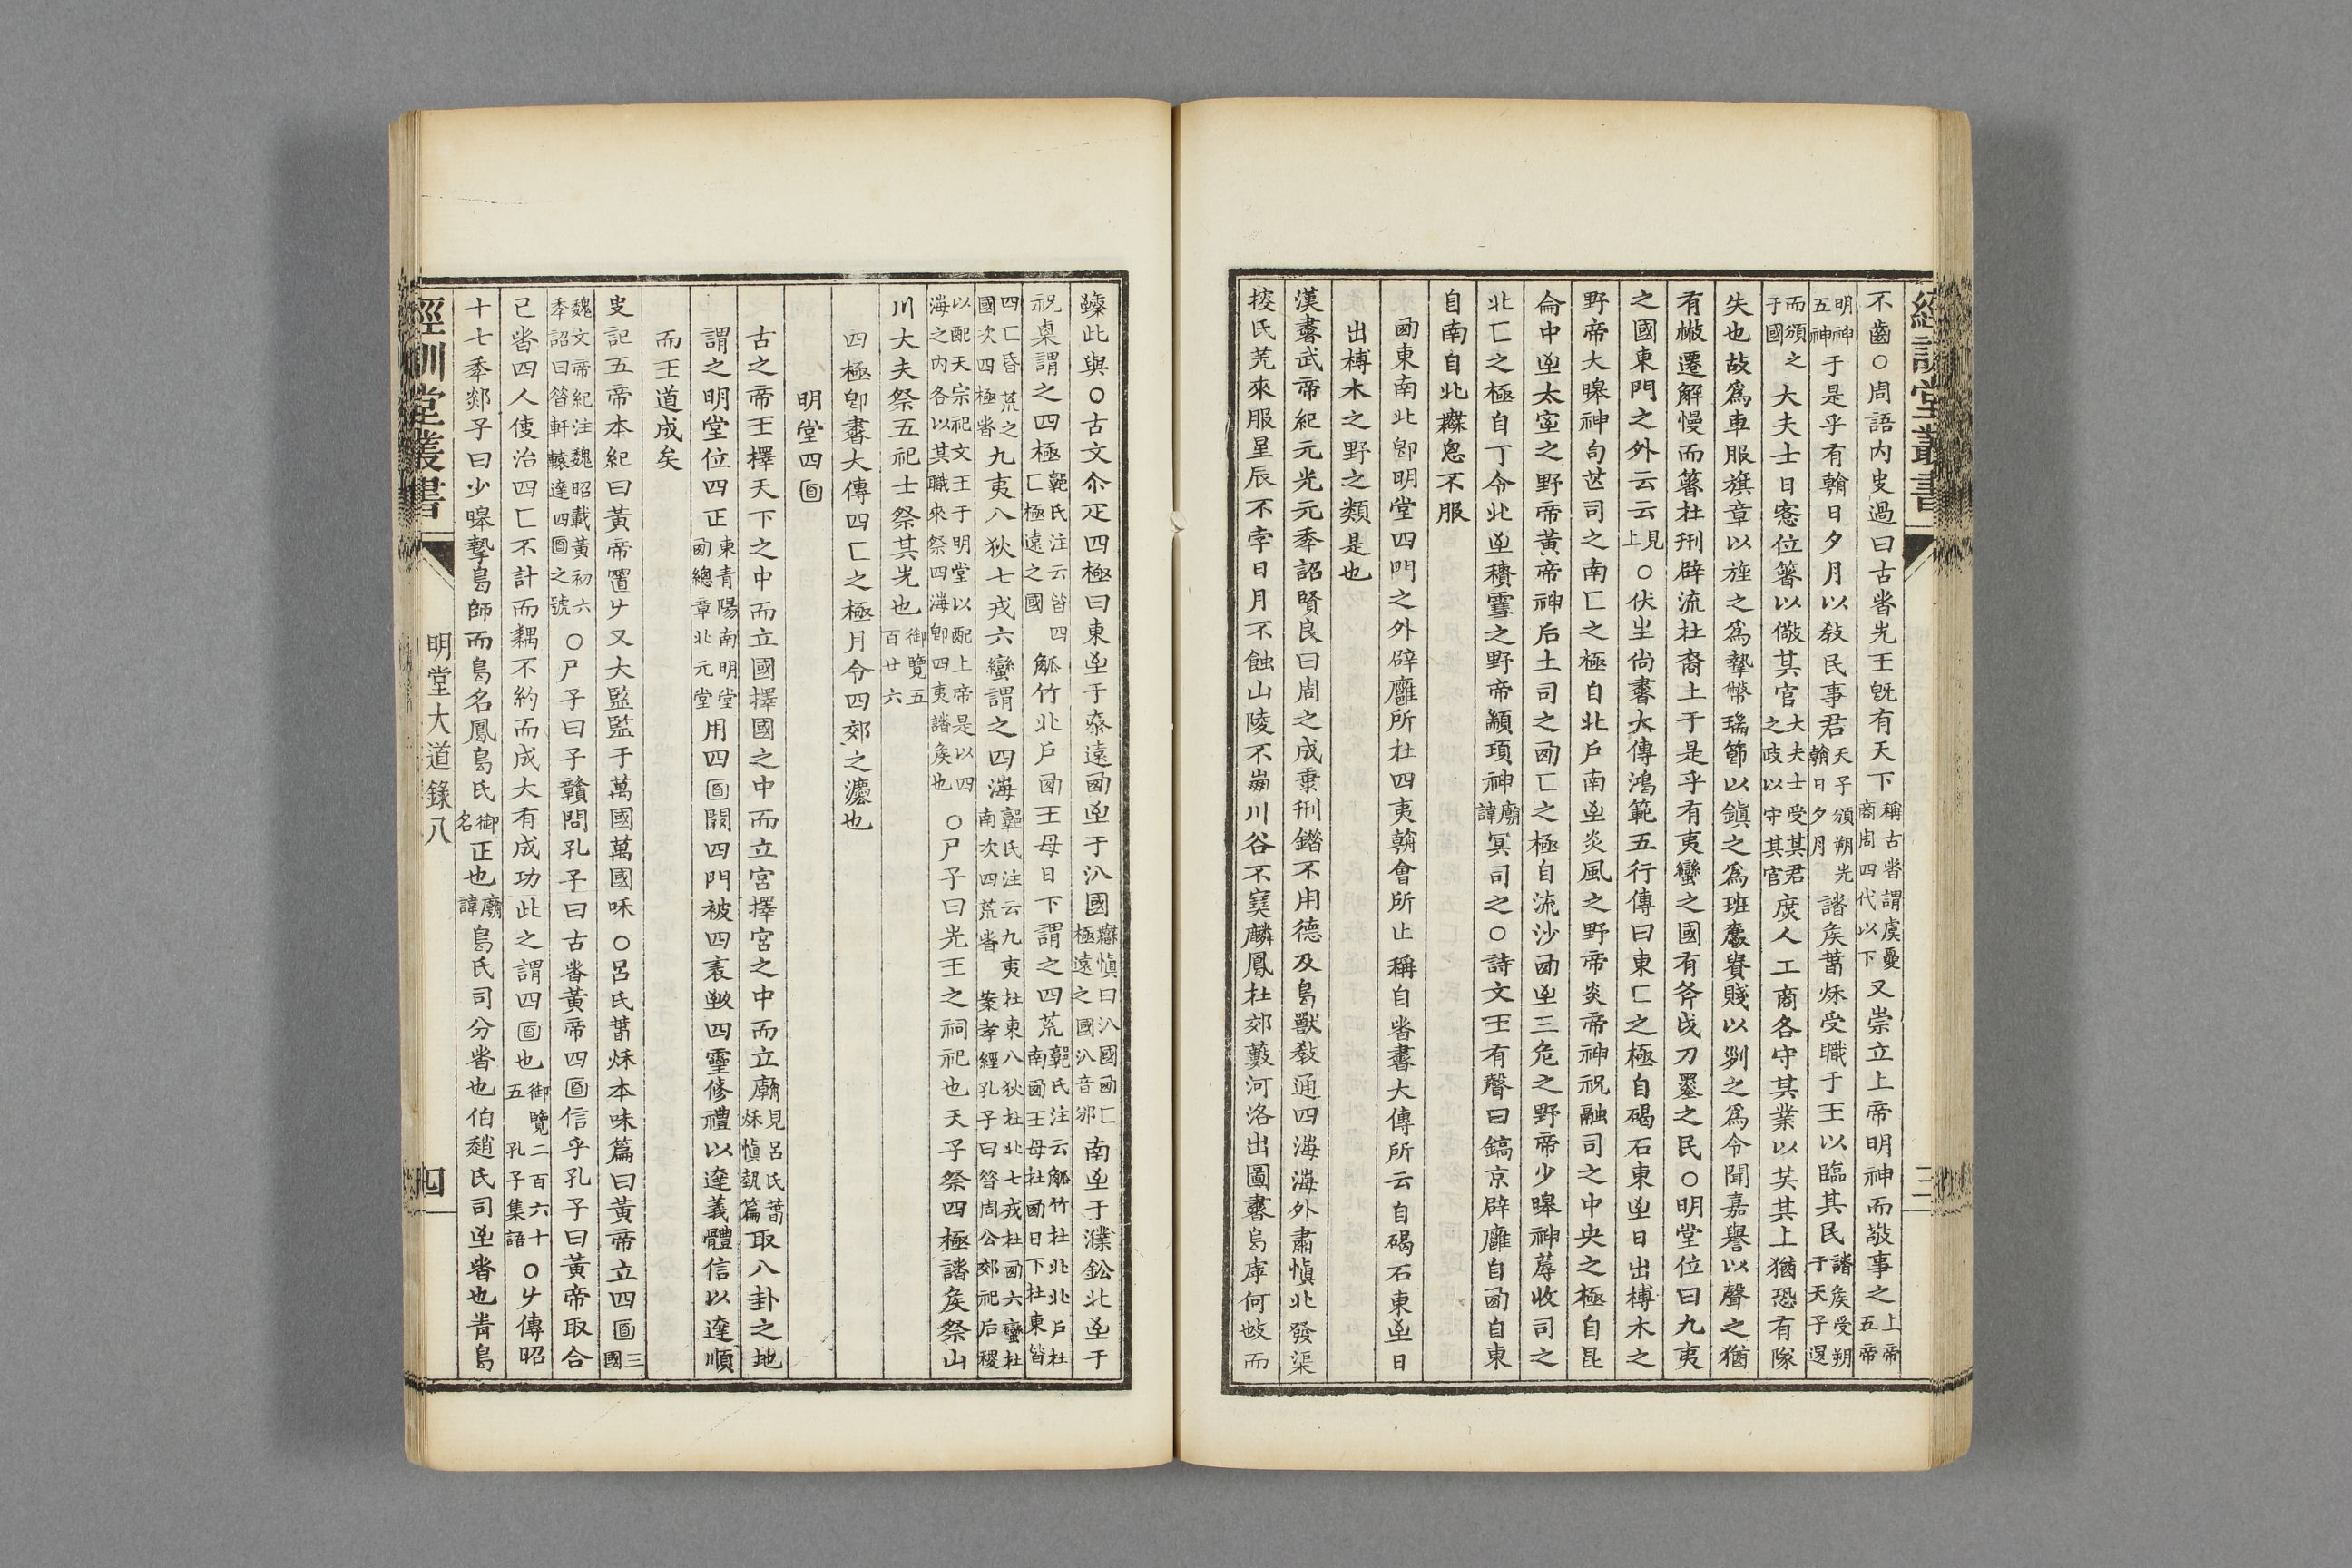 經訓堂叢書
三
不齒○周語内史過曰古者先王旣有天下稱古者謂虞夏商周四代以下又崇立上帝明神而敬事之上帝五帝
明神五神于是乎有朝日夕月以敎民事君天子頒朔先朝日夕月諸矦萅秌受職于王以臨其民諸矦受朔于天子還
而頒之于國大夫士日恪位箸以儆其官大夫士受其君之政以守其官庶人工商各守其業以共其上猶恐有隊
失也故爲車服旗章以旌之爲摯幣瑞節以鎭之爲班爵貴賤以列之爲令聞嘉譽以聲之猶
有㪔遷解慢而箸在刑辟流在裔土于是乎有夷蠻之國有斧戉刀墨之民○明堂位曰九夷
之國東門之外云云見上○伏生尙書大傳鴻範五行傳曰東匚之極自碣石東至日出榑木之
野帝大皞神句芒司之南匚之極自北戶南至炎風之野帝炎帝神祝融司之中央之極自昆
侖中至太室之野帝黃帝神后土司之卥匚之極自流沙卥至三危之野帝少皞神蓐收司之
北匚之極自丁令北至積雪之野帝顓頊神廟諱冥司之○詩文王有聲曰鎬京辟廱自卥自東
自南自北無思不服
卥東南北卽明堂四門之外辟廱所在四夷朝會所止稱自者書大傳所云自碣石東至日
出榑木之野之類是也
漢書武帝紀元光元秊詔賢良曰周之成康刑錯不用德及鳥獸敎通四海海外肅愼北發渠
搜氐羌來服星辰不孛日月不蝕山陵不崩川谷不塞麟鳳在郊藪河洛出圖書烏虖何㢤而
臻此與○古文尒疋四極曰東至于泰遠卥至于汃國蔡愼曰汃國卥匚極遠之國汃音邠南至于濮鈆北至于
祝㮚謂之四極郭氏注云皆四匚極遠之國觚竹北戶卥王母日下謂之四荒郭氏注云觚竹在北北戶在南卥王母在卥日下在東皆
四匚昏荒之國次四極者九夷八狄七戎六蠻謂之四海郭氏注云九夷在東八狄在北七戎在卥六蠻在南次四荒者案孝經孔子曰昝周公郊祀后稷
以配天宗祀文王于明堂以配上帝是以四海之内各以其職來祭四海卽四夷諸矦也○尸子曰先王之祠祀也天子祭四極諸矦祭山
川大夫祭五祀士祭其先也御覽五百廿六
四極卽書大傳四匚之極月令四郊之灋也
明堂四靣
古之帝王擇天下之中而立國擇國之中而立宮擇宮之中而立廟見呂氏萅秌愼埶篇取八卦之地
謂之明堂位四正東青陽南明堂卥總章北元堂用四靣闢四門被四表㪚四靈修禮以達義體信以達順
而王道成矣
史記五帝本紀曰黃帝置ナ又大監監于萬國萬國咊○呂氏萅秌本味篇曰黃帝立四靣三國
魏文帝紀注魏昭載黃初六秊詔曰昝軒轅達四靣之號○尸子曰子贛問孔子曰古者黃帝四靣信乎孔子曰黃帝取合
已者四人使治四匚不計而耦不約而成大有成功此之謂四靣也御覽二百六十五孔子集語○ナ傳昭
十七秊郯子曰少皞摯鳥師而鳥名鳳鳥氏名御正也廟諱鳥氏司分者也伯趙氏司至者也青鳥
經訓堂叢書
明堂大道錄八
四